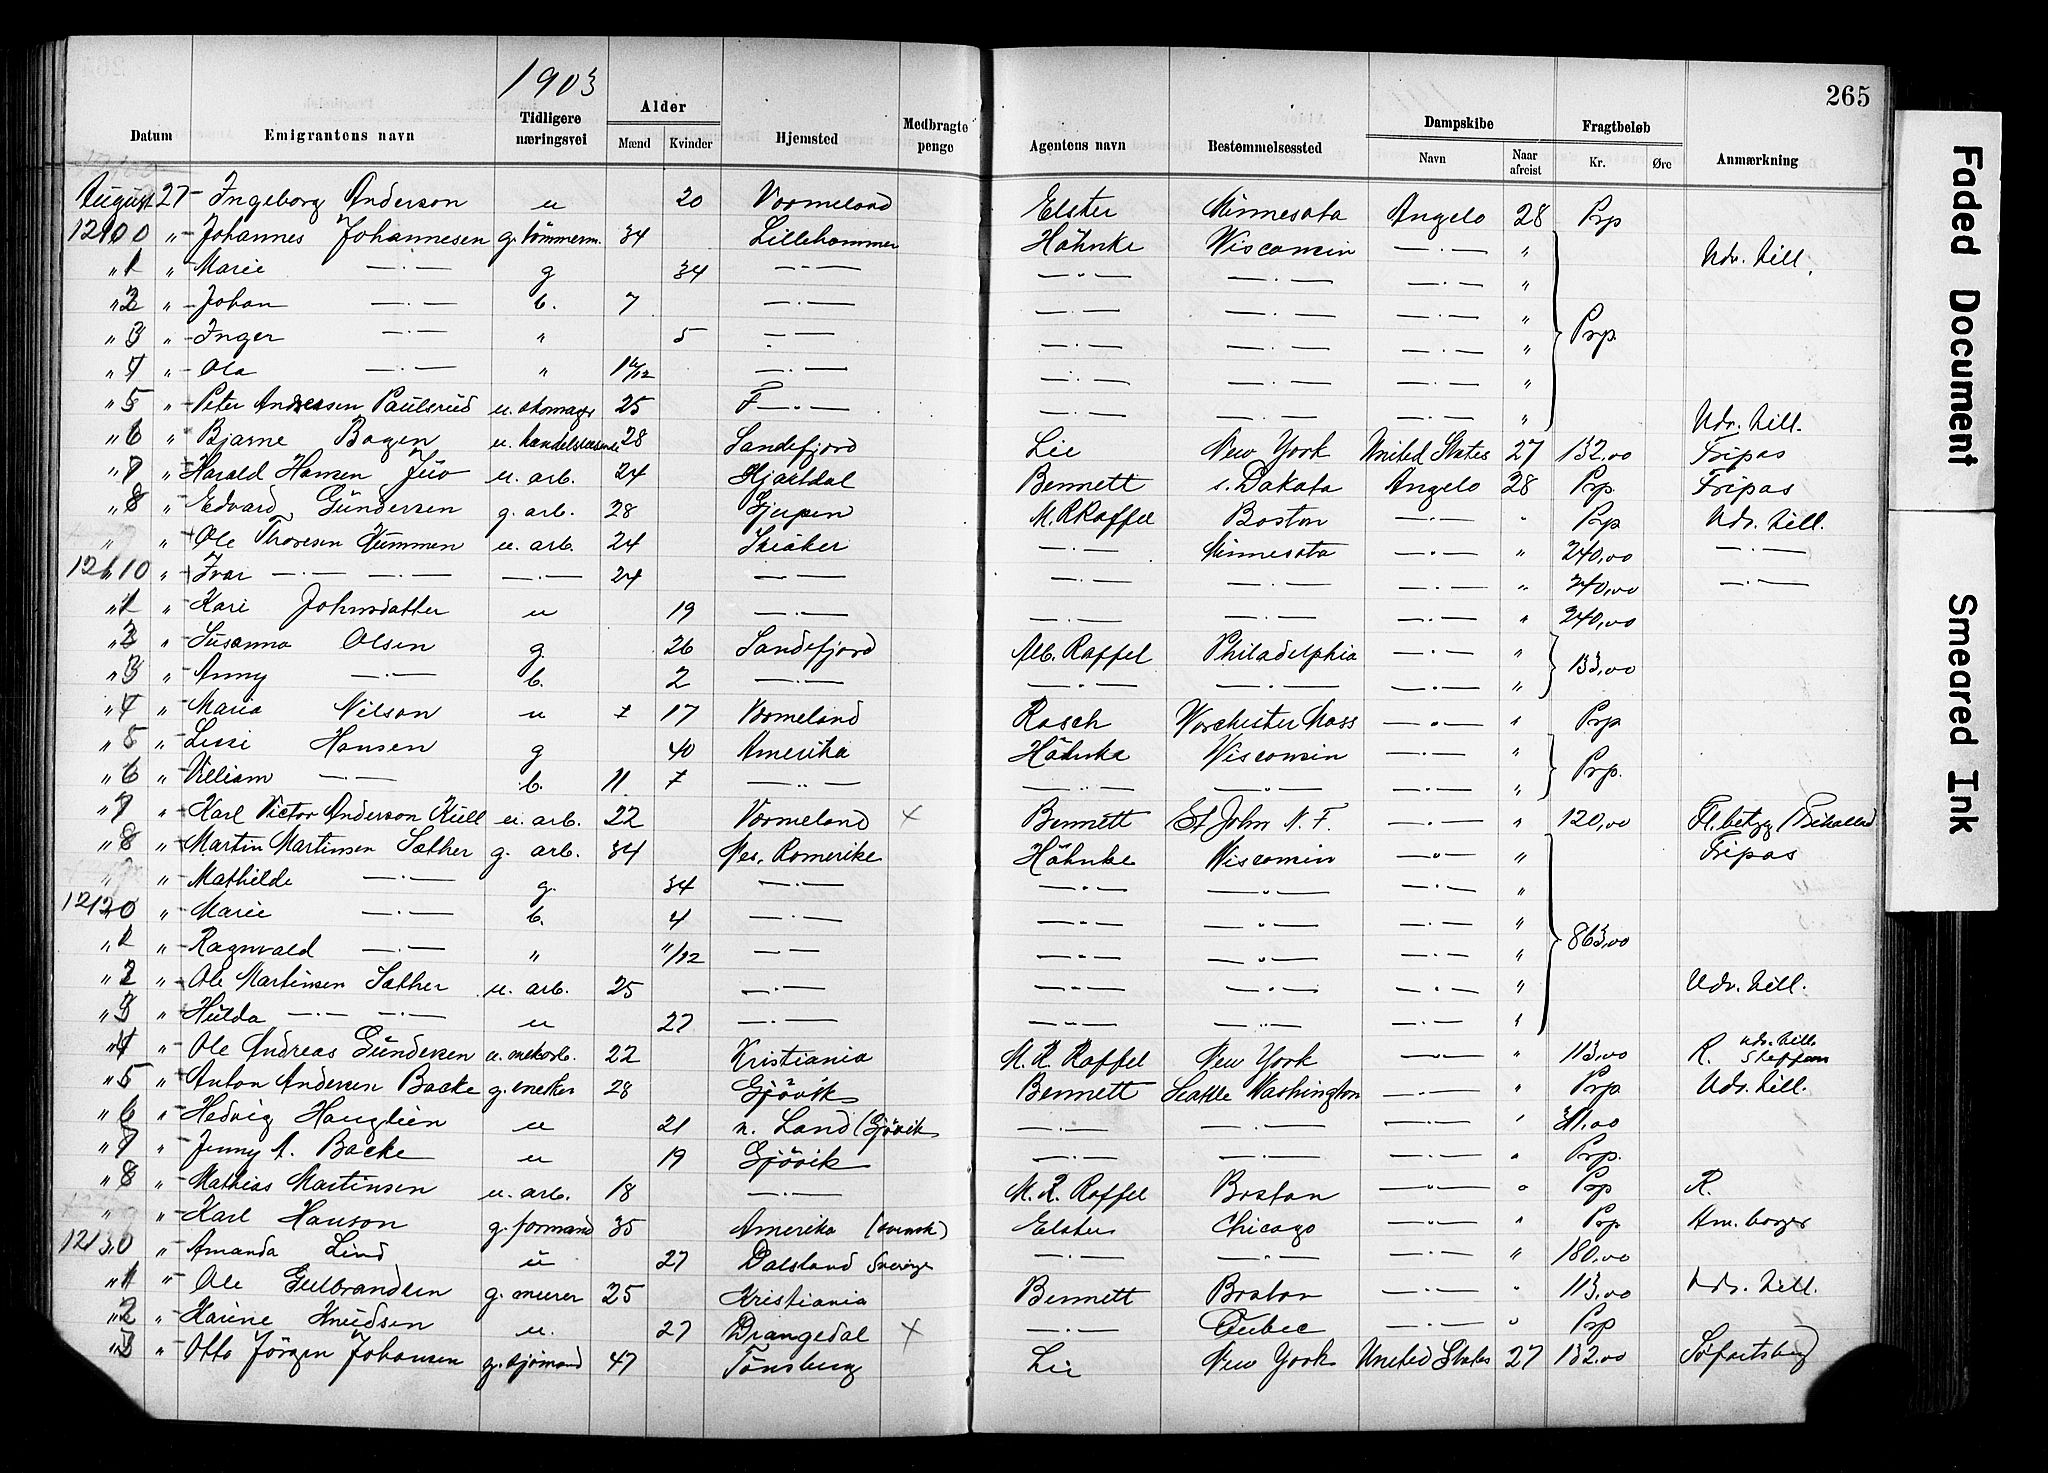 265
1903
Datum Emigrantens navn Tidligere næringsvei Alder Mænd Kvinder Hjemsted Medbragte penge Agentens navn Bestemmelsessted Dampskibe Navn Naar afreist Fragtbeløb Kr. Øre Anmærkning
August 27 Ingeborg Anderson u 20 Vermeland Elster Minnesota Angelo 28 Prp
12100 " Johannes Johannesen g. tömmerm. 34 Lillehammer Höhnke Wisconsin —.— " Udv. till.
" 1 " Marie —.— g 34 —.— —.— —.— —.— "
" 2 " Johan —.— b. 7 —.— —.— —.— —.— "
" 3 " Inger —.— " 5 —.— —.— —.— —.— " Prp.
" 4 " Ola " —.— —.— —.— —.— "
" 5 " Peter Andresen Paulsrud u. skomager 25 F —.— —.— —.— —.— " Udv. till.
" 6 " Bjarne Bogen u. 28 Sandefjord Lie New York United States 27 132.00 Fripas
" 7 " Harald Hansen Juv u. arb. 24 Hjartdal Bennett s. Dakata Angelo 28 Prp. Fripas
" 8 " Edvard Gundersen g. arb. 28 Gjerpen M. R Raffel Boston —.— " Prp Udv. till.
" " Ole Thoresen Kummen u. arb. 24 Skiåker —.— Minnesota —.— " 240,00 —.—
12110 " Ivar —.— —.— —.— 24 —.— —.— —.— —.— " 240,00 —.—
" 1 " Kari Johnsdatter u 19 —.— —.— —.— —.— " 240,00
" 2 " Susanna Olsen g. 26 Sandefjord Alb. Raffel Philadelphia —.— "
" 3 " Anny —.— b. 2 —.— —.— —.— —.— " 133,00
" 4 " Maria Nilson u 17 Vermeland Rasch Worchester Mass —.— " Prp
" 5 " Lissi Hansen g 40 Amerika Höhnke Wisconsin —.— "
" 6 " William —.— b. 11 —.— —.— —.— —.— " Prp.
" 7 " Karl Victor Anderson Kull u. arb. 22 Vermeland × Bennett St John N. F. " 120,00 Fl. betyg
" 8 " Martin Martinsen Sæther g. arb. 34 Nes, Romerike Höhnke Wisconsin —.— " Fripas
" Mathilde —.— g. 34 —.— —.— —.— —.— "
12120 " Marie —.— b. 4 —.— —.— —.— —.— "
" 1 " Ragnvald —.— " 11/12 —.— —.— —.— —.— " 863,00
" 2 " Ole Martinsen Sæther u. arb. 25 —.— —.— —.— —.— " Udv. till.
" 3 " Hulda —.— —.— u 27 —.— —.— —.— —.— "
" 4 " Ole Andreas Gundersen u. 22 Kristiania M. R. Raffel New York —.— " 113,00 R. udv. till.
" 5 " Anton Andersen Backe g. snekker 28 Gjövik Bennett Seattle Washington —.— " Prp Udv. till.
" 6 " Hedvig Hauglien u 21 n. Land (Gjövik —.— —.— —.— "
" 7 " Jenny A. Backe u 19 Gjövik —.— —.— —.— " Prp.
" 8 " Mathias Martinsen u. arb. 18 —.— M. R. Raffel Boston —.— " Prp R.
" " Karl Hanson g. formand 35 Amerika (svensk) Elster Chicago —.— " Prp Am. borger
12130 " Amanda Lind u 27 Dalsland Sverige —.— —.— —.— " 180,00
" 1 " Ole Gulbrandsen g. murer 25 Kristiania Bennett Boston —.— " 113,00 Udv. till.
" 2 " Karine Knudsen u. 27 Drangedal × —.— Qubec —.— " Prp
" 3 " Otto Jörgen Johansen g. sjömand 47 Tönsberg Lie New York United States 27 132.00
Faded Document
Smeared Ink